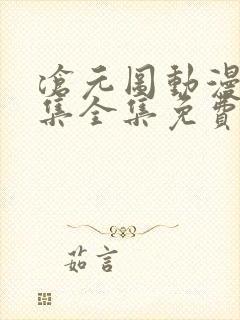 滄元圖動漫
集全集免費
茹言